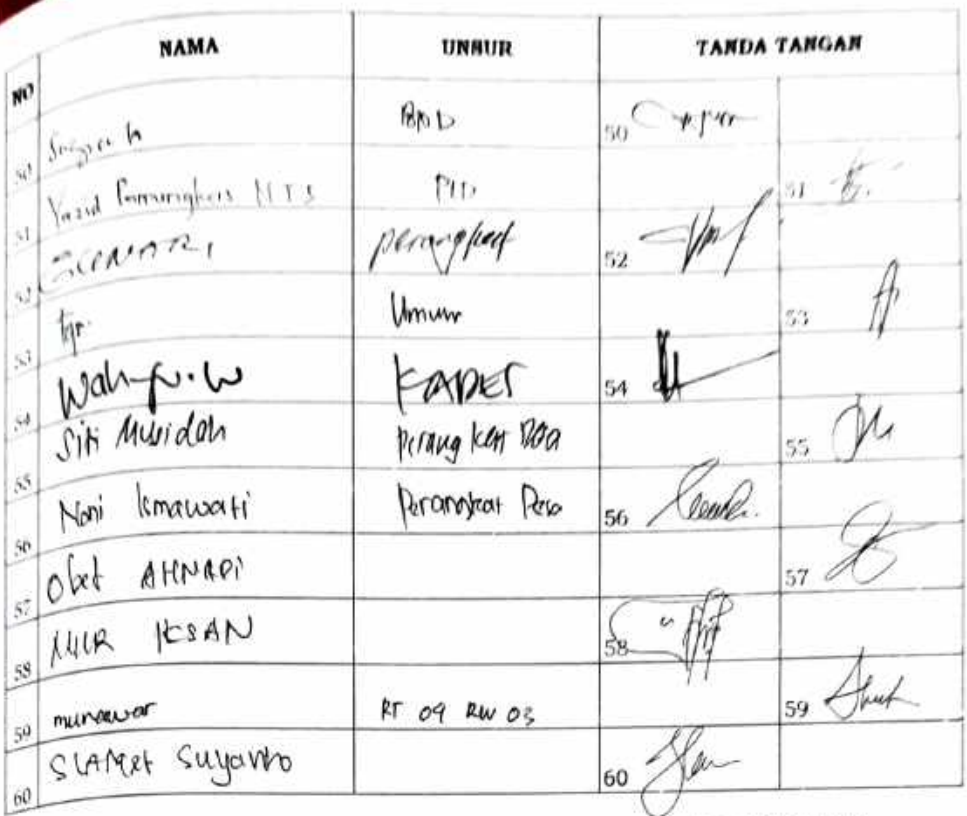 NO NAMA UNSUR TANDA TANGAN
50 BPD 50
51 Yazid PID 51
52 SUNARI perangkat 52
53 Umum 53
54 Wahyu.W KADES 54
55 Siti Musidah Perangkat Desa 55
56 Nani Ismawati Perangkat Desa 56
57 Obet AHNADi 57
58 NUR IKSAN 58
59 munawar RT 09 RW 03 59
60 SLAMet Suyanto 60